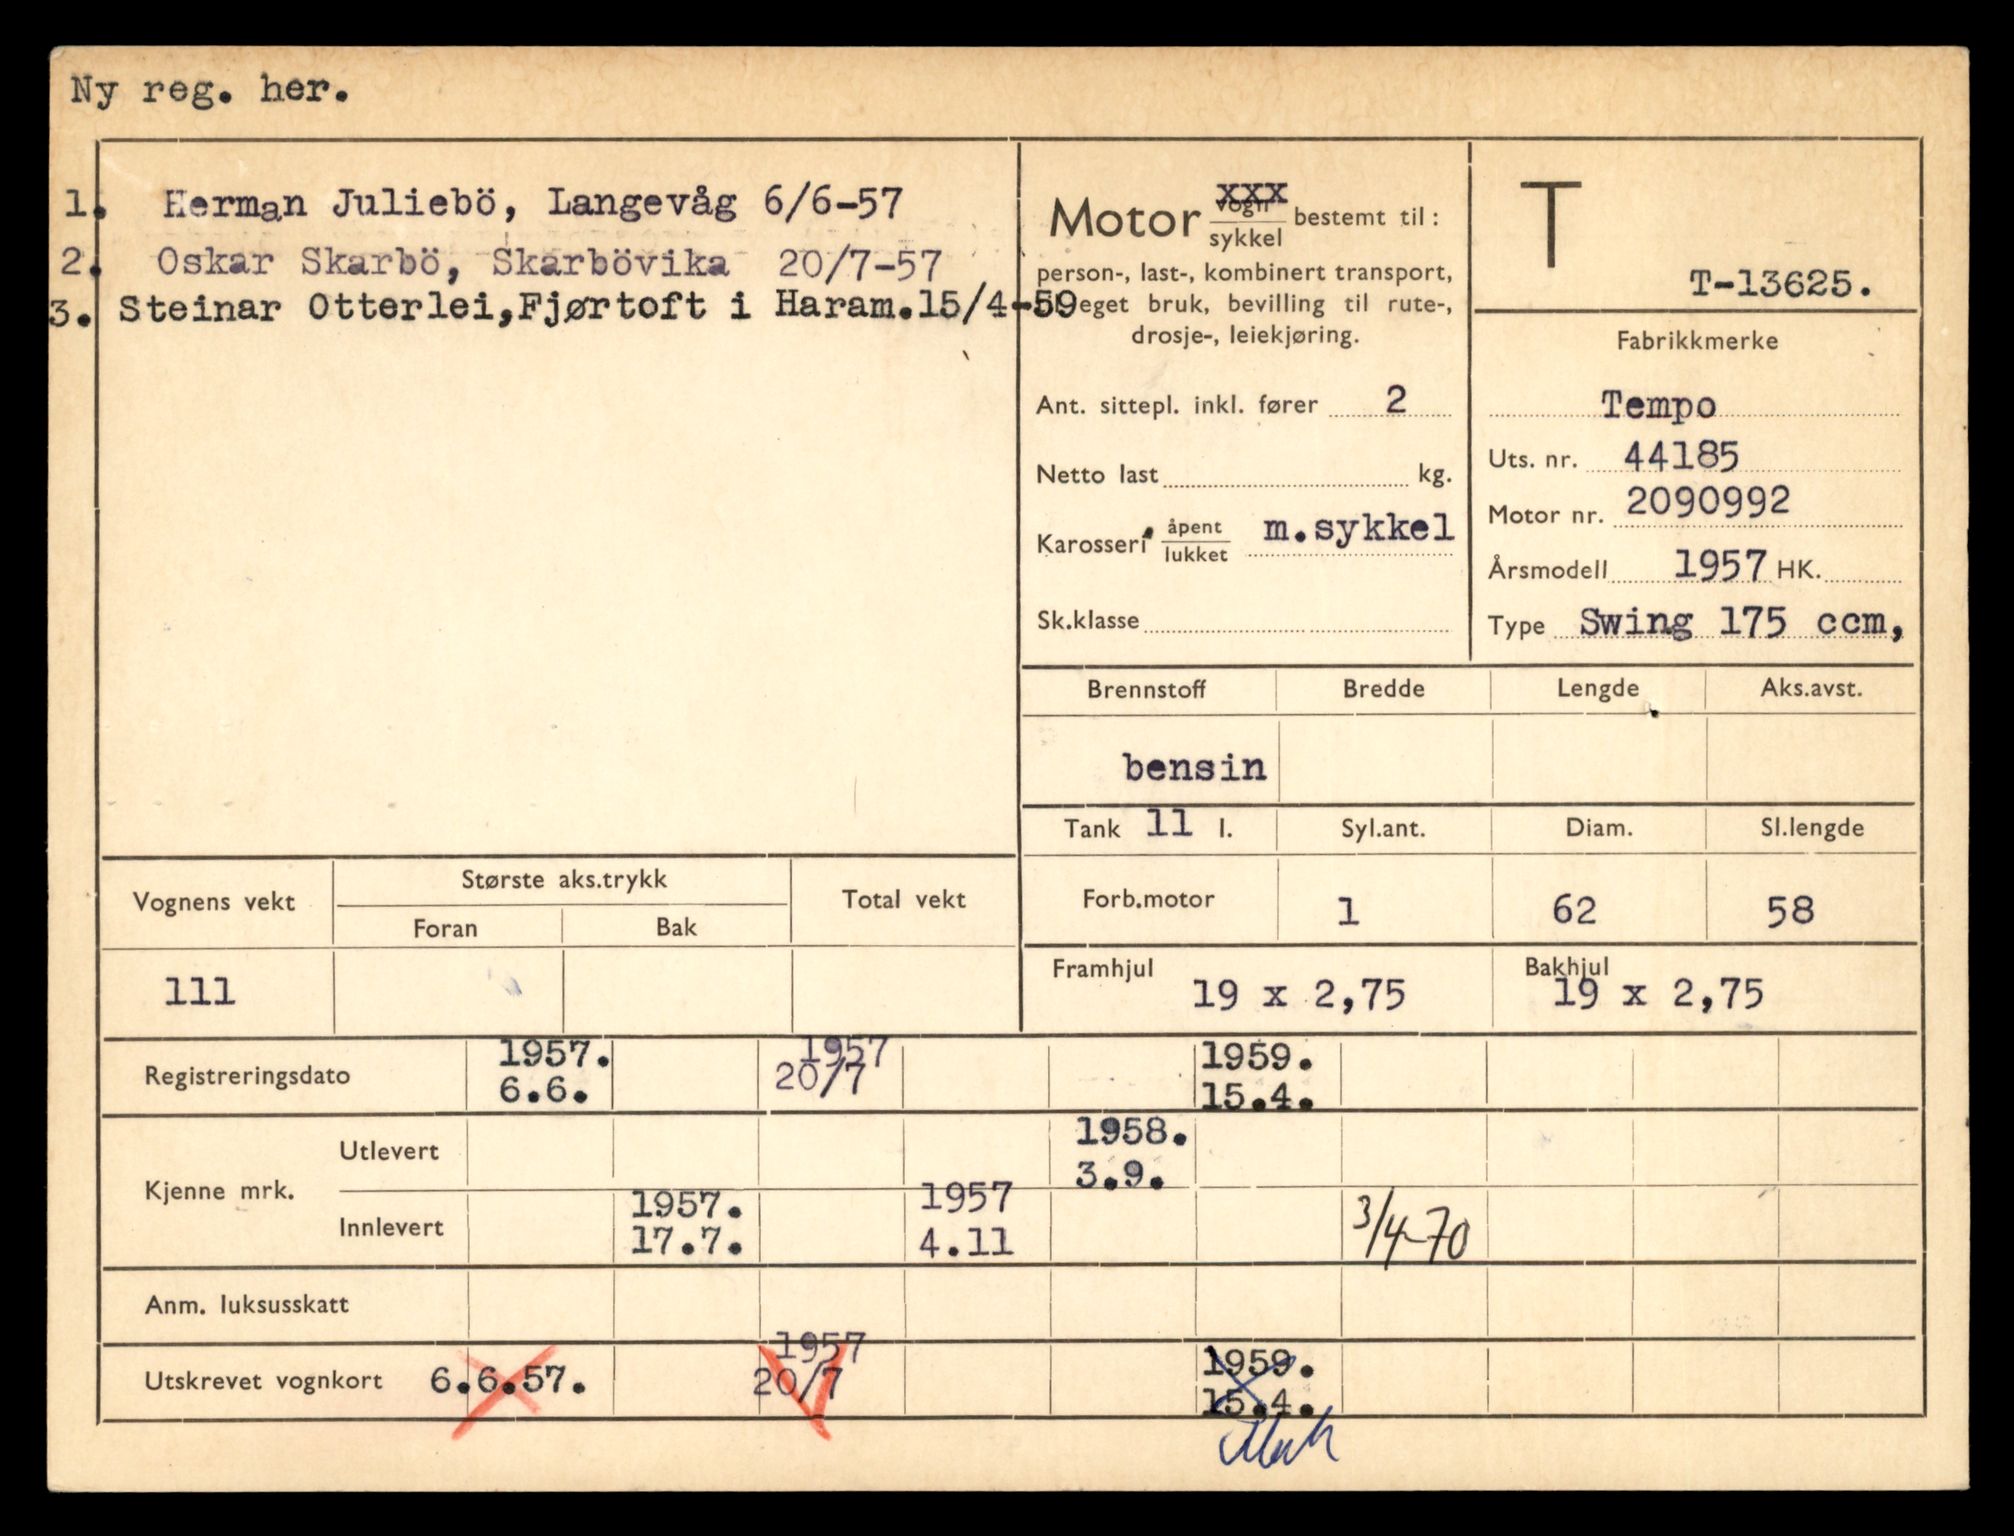 Ny reg. her.
1. Herman Juliebö, Langevåg 6/6-57
2. Oskar Skarbö, Skarbövika 20/7-57
3. Steinar Otterlei,Fjørtoft i Haram.15/4-59
Motor vogn/sykkel bestemt til:
xxx
person-, last-, kombinert transport,
eget bruk, bevilling til rute-,
drosje-, leiekjøring.
Ant. sittepl. inkl. fører 2
Netto last kg.
Karosseri åpent/lukket m.sykkel
Sk.klasse
T
T-13625.
Fabrikkmerke
Tempo
Uts. nr. 44185
Motor nr. 2090992
Årsmodell 1957 HK.
Type Swing 175 ccm,
Brennstoff Bredde Lengde Aks.avst.
bensin
Tank 11 l. Syl.ant. Diam. Sl.lengde
Forb.motor 1 62 58
Framhjul 19 x 2,75 Bakhjul 19 x 2,75
Vognens vekt Største aks.trykk Total vekt
Foran Bak
111
Registreringsdato 1957. 6.6. 1957 20/7 1959. 15.4.
Kjenne mrk.
Utlevert 1958. 3.9.
Innlevert 1957. 17.7. 1957 4.11 3/4-70
Anm. luksusskatt
Utskrevet vognkort 6.6.57. 1957 20/7 1959. 15.4.